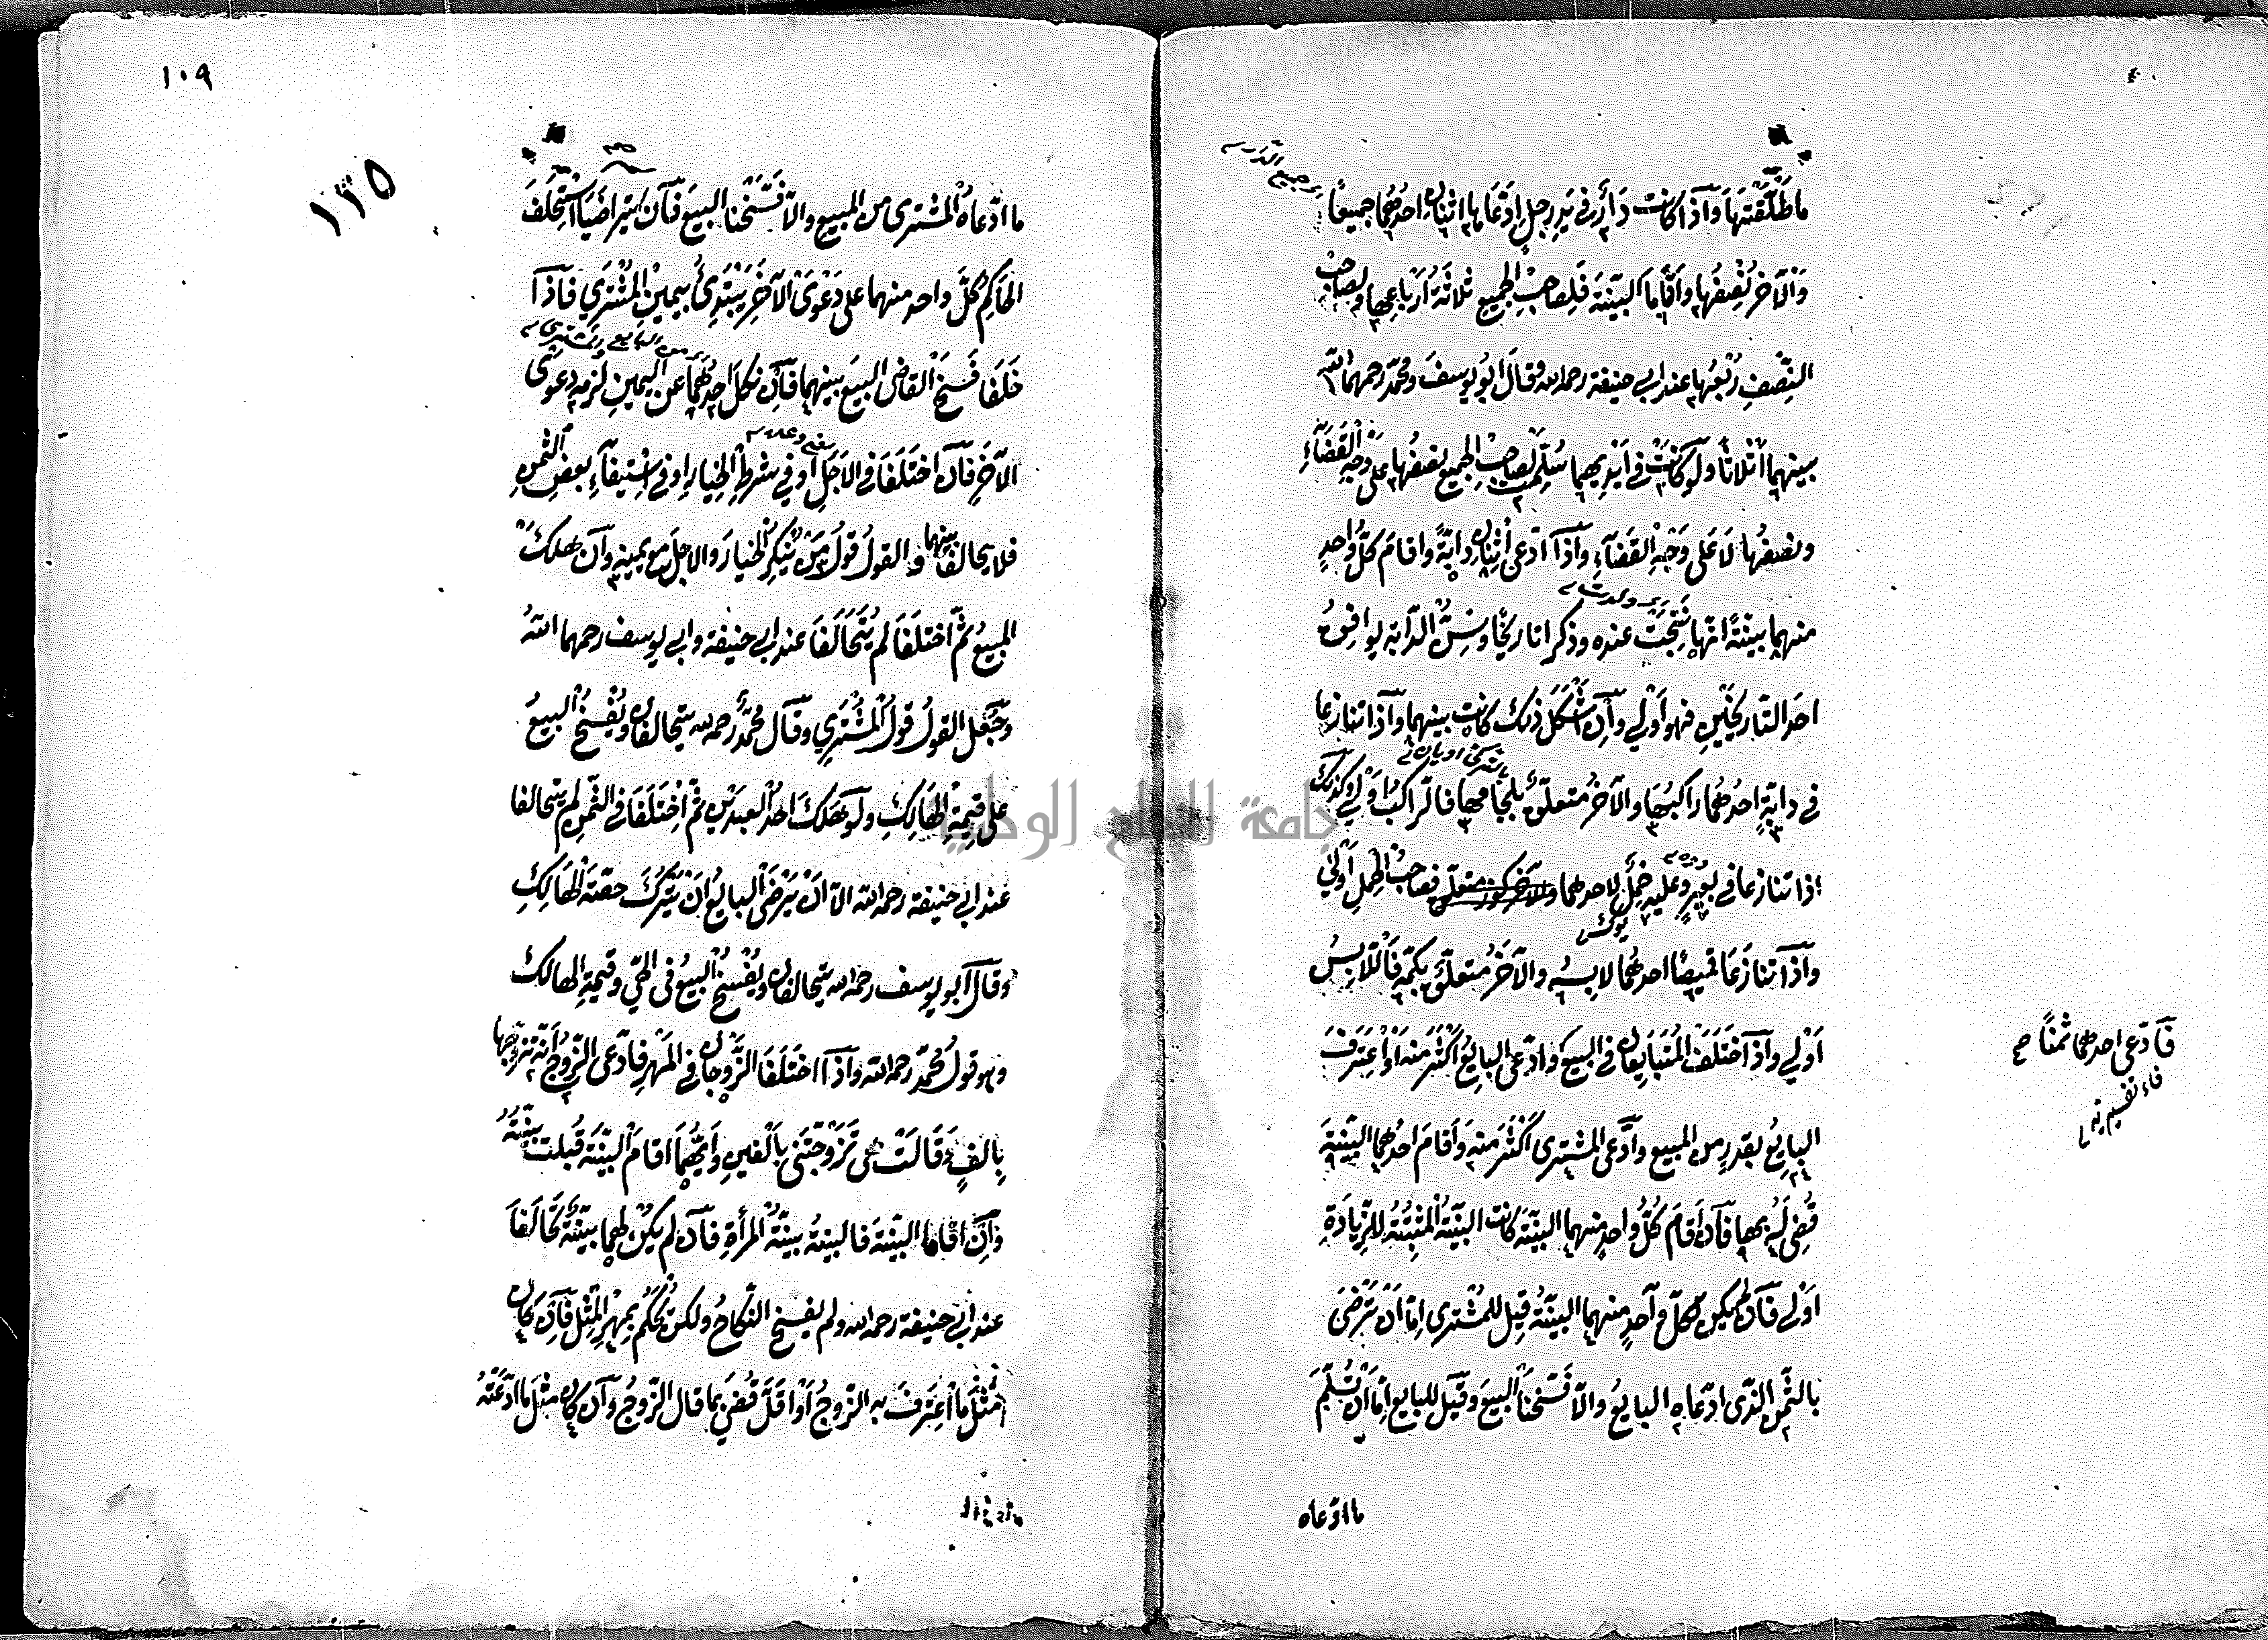 ما طلقتها واذا كانت دار في يد رجل ادعاها اثنان احدهما جميعا
والآخر نصفها واقاما البينة فلصاحب الجميع ثلاثة ارباعها ولصاحب
النصف ربعها عند ابي حنيفة رحمه الله وقال ابو يوسف ومحمد رحمهما الله
بينهما اثلاثا ولو كانت في ايديهما سلمت لصاحب الجميع نصفها على وجه القضاء
ونصفها لا على وجه القضاء واذا ادعى اثنان دابة واقام كل واحد
منهما بينة انها نتجت عنده وذكرا تاريخا وسن الدابة يوافق
احد التاريخين فهو اولى وان اشكل ذلك كانت بينهما واذا تنازعا
في دابة احدهما راكبها والآخر متعلق بلجامها فالراكب اولى وكذلك
اذا تنازعا في بعير وعليه حمل لاحدهما فصاحب الحمل اولى
واذا تنازعا قميصا احدهما لابسه والآخر متعلق بكمه فاللابس
اولى واذا اختلف المتبايعان في البيع وادعى البايع اكثر منه او اعترف
فادعى احدهما ثمنا صح
البايع بقدر من المبيع وادعى المشترى اكثر منه واقام احدهما البينة
قضى له بها فان اقام كل واحد منهما البينة كانت البينة المثبتة للزيادة
اولى فان لم يكن لكل واحد منهما البينة قيل للمشترى اما ان ترضى
بالثمن الذى ادعاه البايع والا فسخنا البيع وقيل للبايع اما ان تسلم
ما ادعاه
١٠٩
١٢٥
ما ادعاه المشترى من المبيع والا فسخنا البيع فان لم يتراضيا استحلف
الحاكم كل واحد منهما على دعوى الآخر يبتدئ بيمين المشتري فاذا
حلفا فسخ القاضى البيع بينهما فان نكل احدهما عن اليمين لزمه دعوى
الآخر فان اختلفا في الاجل او في شرط الخيار او في استيفاء بعض الثمن
فلا يحالف بينهما والقول قول من ينكر الخيار والاجل مع يمينه وان هلك
المبيع ثم اختلفا لم يتحالفا عند ابي حنيفة وابي يوسف رحمهما الله
وجعل القول قول المشتري وقال محمد رحمه الله يتحالفان ويفسخ البيع
على قيمة الهالك ولو هلك احد العبدين ثم اختلفا في الثمن لم يتحالفا
عند ابي حنيفة رحمه الله الا ان يرضى البايع ان يترك حقه الهالك
وقال ابو يوسف رحمه الله يتحالفان ويفسخ البيع فى الحي وقيمة الهالك
وهو قول محمد رحمه الله واذا اختلفا الزوجان في المهر فادعى الزوج انه تزوجها
بالف وقالت هى تزوجتنى بالفين وايهما اقام البينة قبلت بينته
وان اقاما البينة فالبينة بينة المرأة فان لم يكن لهما بينة تحالفا
عند ابي حنيفة رحمه الله ولم يفسخ النكاح ولكن يحكم بمهر المثل فان كان
مثل ما اعترف به الزوج او اقل قضى بما قال الزوج وان كان مثل ما ادعته
جامعة النجاح الوطنية